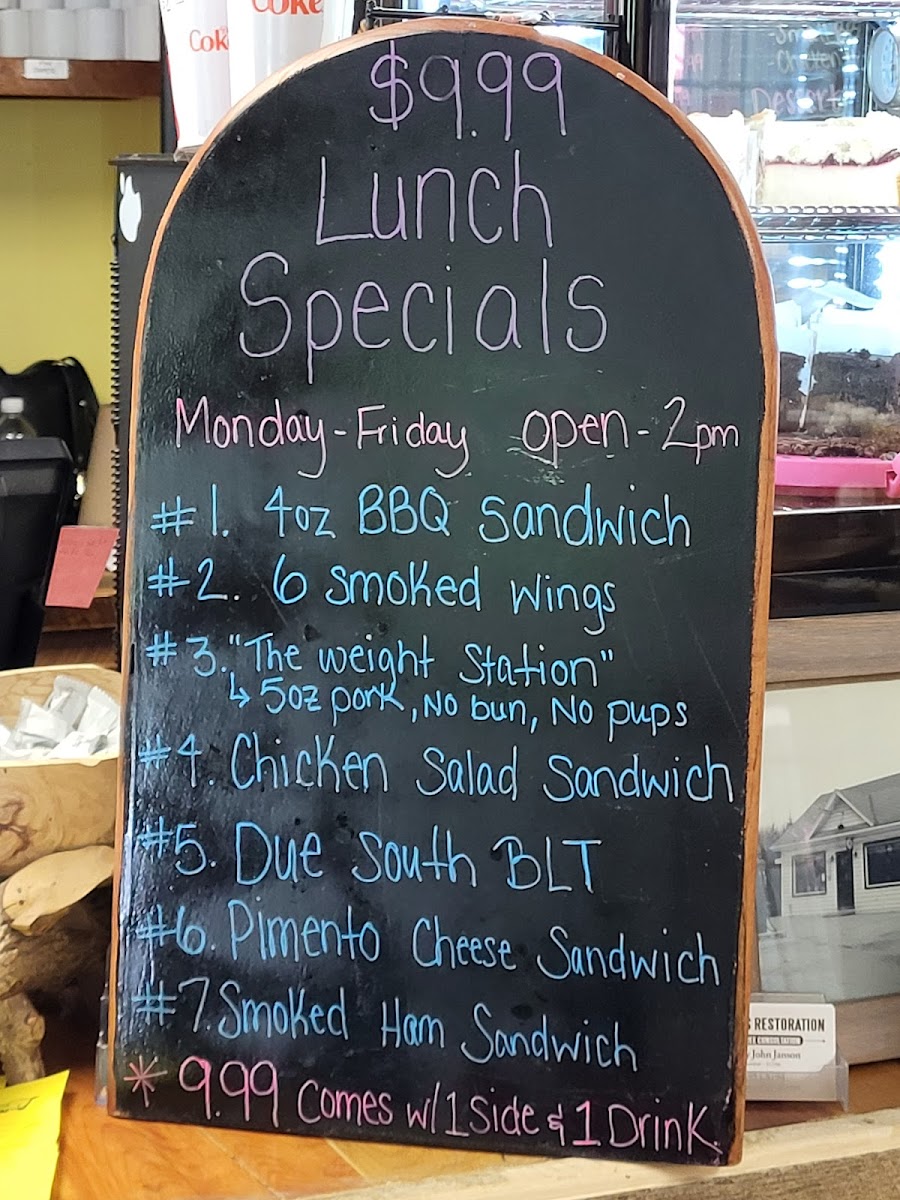 Coke
Coke
$9.99
Lunch
Specials
Monday-Friday open-2pm
#1. 4oz BBQ Sandwich
#2. 6 smoked wings
#3. "The weight Station"
↳ 5oz pork, No bun, No pups
#4. Chicken Salad Sandwich
#5. Due South BLT
#6. Pimento Cheese Sandwich
#7. Smoked Ham Sandwich
* 9.99 Comes w/ 1 Side & 1 Drink
RESTORATION
John Janson